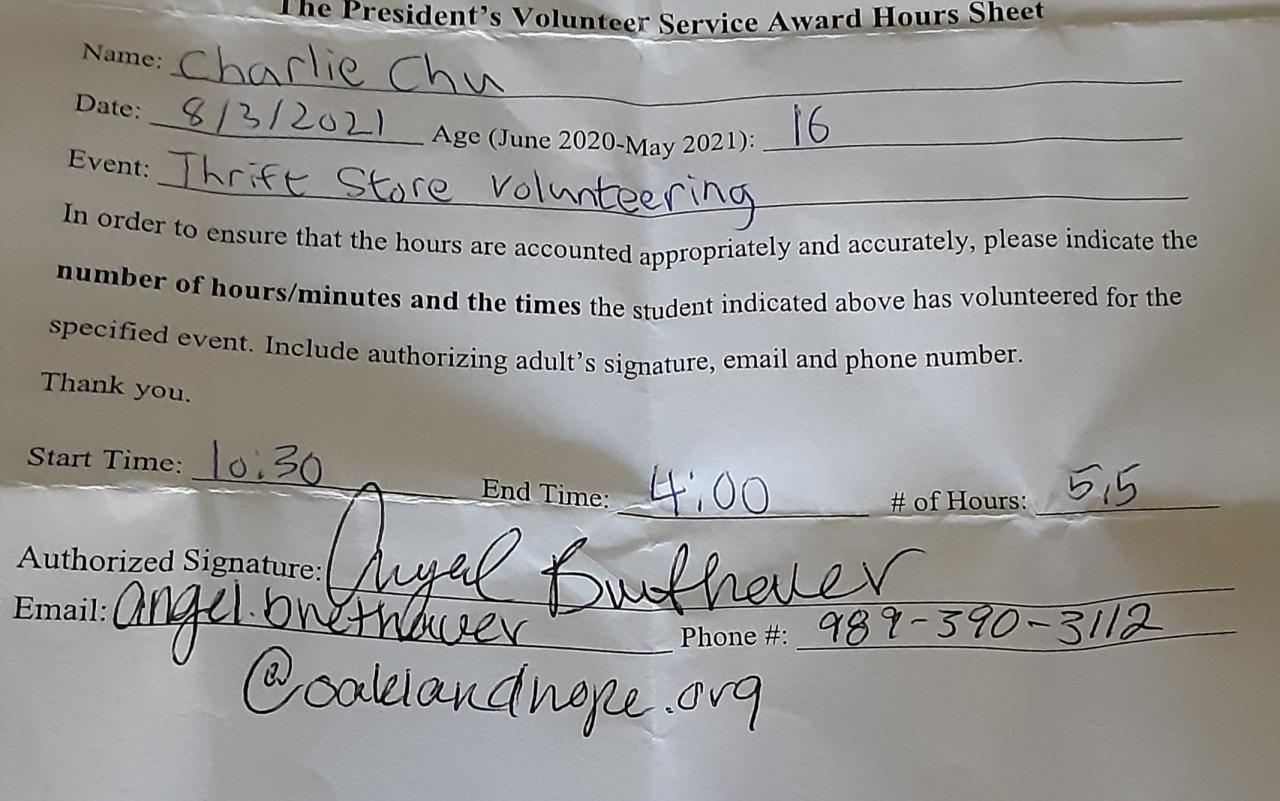 The President's Volunteer Service Award Hours Sheet
Name: Charlie Chu
Date: 8/3/2021 Age (June 2020-May 2021): 16
Event: Thrift Store Volunteering
In order to ensure that the hours are accounted appropriately and accurately, please indicate the
number of hours/minutes and the times the student indicated above has volunteered for the
specified event. Include authorizing adult's signature, email and phone number.
Thank you.
Start Time: 10:30 End Time: 4:00 # of Hours: 5.5
Authorized Signature: Angel
Email: Phone #: 989-390-3112
@oaklandhope.org